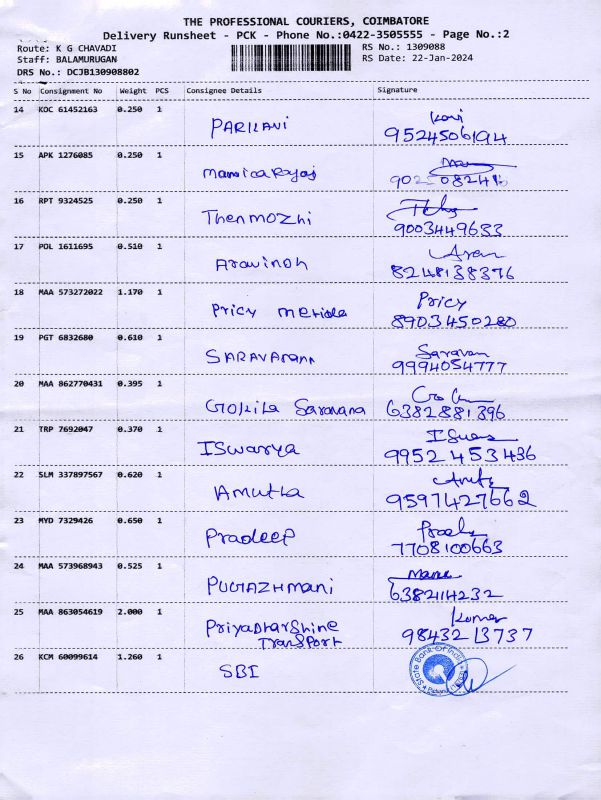 THE PROFESSIONAL COURIERS, COIMBATORE
Delivery Runsheet - PCK - Phone No.:0422-3505555 - Page No.:2
Route: K G CHAVADI
RS No.: 1309088
Staff: BALAMURUGAN
RS Date: 22-Jan-2024
DRS No.: DCJB130908802
S No Consignment No Weight PCS Consignee Details Signature
14 KOC 61452163 0.250 1 PARILANI
9524506194
15 APK 1276085 0.250 1
16 RPT 9324525 0.250 1 Thenmozhi
9003449633
17 POL 1611695 0.510 1 Aravindh Aravn
8248138376
18 MAA 573272022 1.170 1 Pricy Pricy
8903450280
19 PGT 6832680 0.610 1 SARAVANAN Saravan
9994054777
20 MAA 862770431 0.395 1 Gokila Saravana
6382881396
21 TRP 7692047 0.370 1 ISwarya
9952 453436
22 SLM 337897567 0.620 1 Amutha
9597427662
23 MYD 7329426 0.650 1 Pradeep
7708100663
24 MAA 573968943 0.525 1 PUGAZHmani
6382114232
25 MAA 863054619 2.000 1 PriyaDharShine Kumar
TranSPort 9843213737
26 KCM 60099614 1.260 1 SBI
State Bank Of India